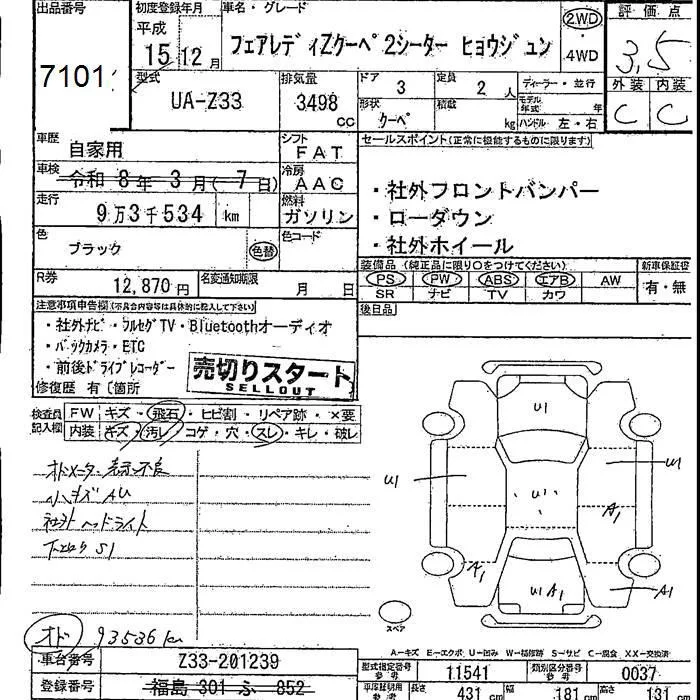 出品番号
7101
初度登録年月
平成
15年 12月
車名・グレード
フェアレディZクーペ 2シーター ヒョウジュン
2.WD
4WD
評価点
3.5
外装 内装
C C
型式
UA-Z33
排気量
3498
CC
ドア
3
定員
2 人
形状
クーペ
積載
kg
ディーラー・並行
モデル年式 年
ハンドル 左・右
車歴
自家用
シフト
FAT
セールスポイント(正常に機能するものに限ります)
・社外フロントバンパー
・ローダウン
・社外ホイール
車検
令和 8年 3月( 7日)
冷房
AAC
走行
9万3千534 km
燃料
ガソリン
色
ブラック
色替
色コード
R券
12,870円
名変通知期限
月 日
装備品 (純正品に限り○をつけてください)
PS PW ABS エアB AW
SR ナビ TV カワ
新車保証書
有・無
後日品
注意事項申告欄(不具合内容等は具体的に記入して下さい)
・社外ナビ・フルセグTV・Bluetoothオーディオ
・バックカメラ・ETC
・前後ドライブレコーダー
修復歴 有〔箇所
売切りスタート
SELLOUT
検査員記入欄
FW キズ・飛石・ヒビ割・リペア跡・×要
内装 キズ・汚レ・コゲ・穴・スレ・キレ・破レ
オドメーター表示不良
小キズ AU
社外ヘッドライト
下回り S1
オド 93536 km
U1
U1
U1
U1
A1
A1
U1 A1
A1
スペア
A－キズ E－エクボ U－凹み W－補修跡 S－サビ C－腐食 XX－交換済
車台番号
Z33-201239
登録番号
福島 301 ふ 852
型式指定番号
参考
11541
類別区分番号
参考
0037
車庫証明用
参考
長さ
431 cm
幅
181 cm
高さ
131 cm